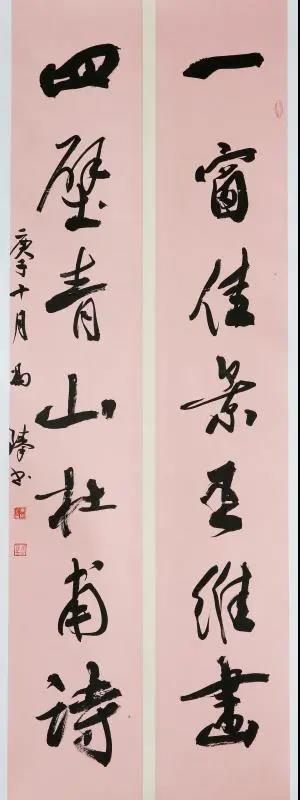 一窗佳景王維畫
四壁青山杜甫詩
庚子十月